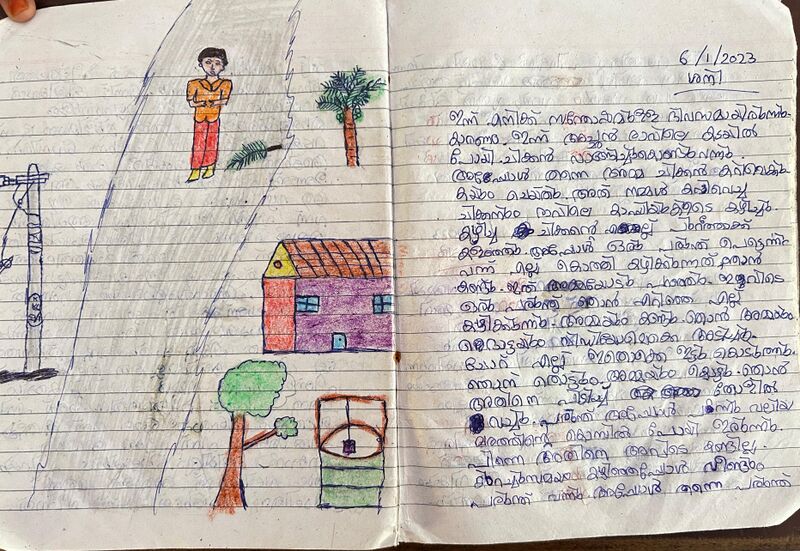 6/1/2023
ശനി
ഇന്ന് എനിക്ക് സന്തോഷമുള്ള ദിവസമായിരുന്നു.
കാരണം ഇന്ന് അച്ഛൻ രാവിലെ കടയിൽ
പോയി ചിക്കൻ വാങ്ങിച്ചുകൊണ്ടുവന്നു.
അപ്പോൾ തന്നെ അമ്മ ചിക്കൻ കറിവെക്കു
കയും ചെയ്തു. അത് നമ്മൾ കറിവെച്ച
ചിക്കനും രാവിലെ കാപ്പിയുടെ കഴിച്ചു.
കഴിച്ച ചിക്കന്റെ എല്ല്
കളഞ്ഞു. അപ്പോൾ ഒരു പരുന്ത് പെട്ടെന്ന്
വന്ന് എല്ല് കൊത്തി കഴിക്കുന്നത് ഞാൻ
കണ്ടു. ഇത് അമ്മയോടും പറഞ്ഞു. ഇവിടെ
ഒരു പരുന്ത് ഞാൻ എറിഞ്ഞ എല്ല്
കഴിക്കുന്നു. അമ്മയും കണ്ടു. ഞാൻ അമ്മയും
ഫോട്ടോയും വീഡിയോയുമൊക്കെ അടിച്ചു.
ചോറ് എല്ല് ഇതൊക്കെ ഇട്ടു കൊടുത്തു.
ഞാൻ തൊട്ടും അമ്മയും തൊട്ടു. ഞാൻ
അതിനെ പിടിച്ച് തോളിൽ
വച്ചു. പരുന്ത് അപ്പോൾ വലിയ
മരത്തിന്റെ കൊമ്പിൽ പോയി ഇരുന്നു.
പിന്നെ അതിനെ അവിടെ കണ്ടില്ല.
കുറച്ചുസമയം കഴിഞ്ഞപ്പോൾ വീണ്ടും
പരുന്ത് വന്നു. അപ്പോൾ തന്നെ പരുന്ത്